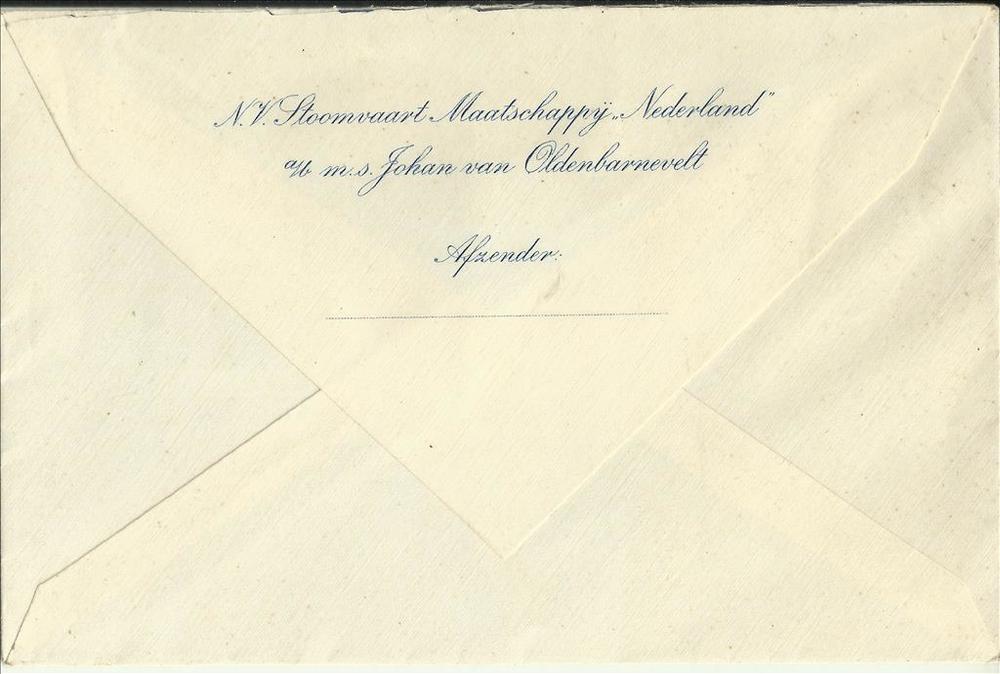 N.V. Stoomvaart Maatschappÿ „Nederland"
a/b m.s. Johan van Oldenbarnevelt
Afzender: